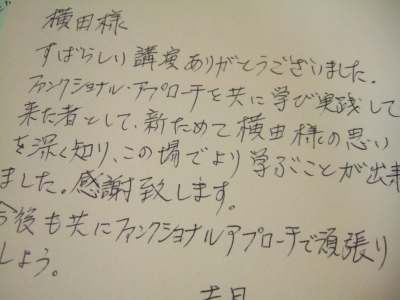 横田様
すばらしい講演ありがとうございました。
ファンクショナル・アプローチを共に学び実践して
来た者として、新ためて横田様の思い
を深く知り、この場でより学ぶことが出来
ました。感謝致します。
今後も共にファンクショナルアプローチで頑張り
しょう。